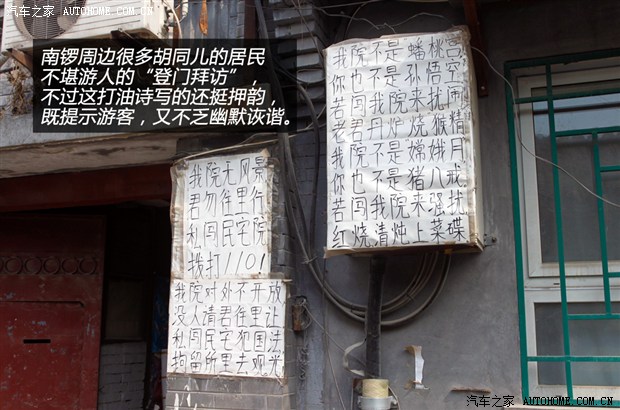 汽车之家 AUTOHOME.COM.CN
南锣周边很多胡同儿的居民
不堪游人的“登门拜访”，
不过这打油诗写的还挺押韵，
既提示游客，又不乏幽默诙谐。
我院不是蟠桃宫
你也不是孙悟空
若闯我院来扰闹
老君丹炉烧猴精
我院不是嫦娥月
你也不是猪八戒
若闯我院来骚扰
红烧清炖上菜碟
我院无风景
君勿往里行
私闯民宅院
拨打1101
我院对外不开放
没人请君往里让
私闯民宅犯国法
拘留所里去观光
汽车之家 WWW.AUTOHOME.COM.CN